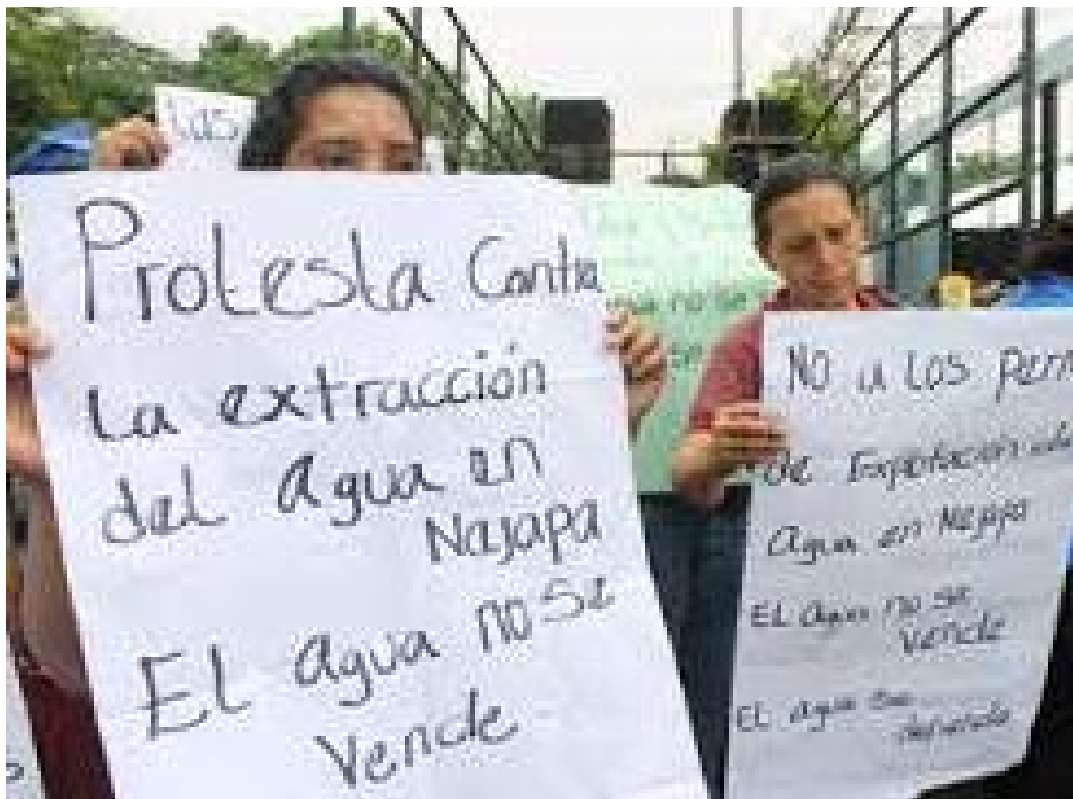 Las
Protesta Contra
La extracción
del agua en
Najapa
El agua no se
Vende
no se
se
NO a LOS perm
de Exportación
Agua en Nejapa
EL Agua no se
Vende
EL agua se
defiende